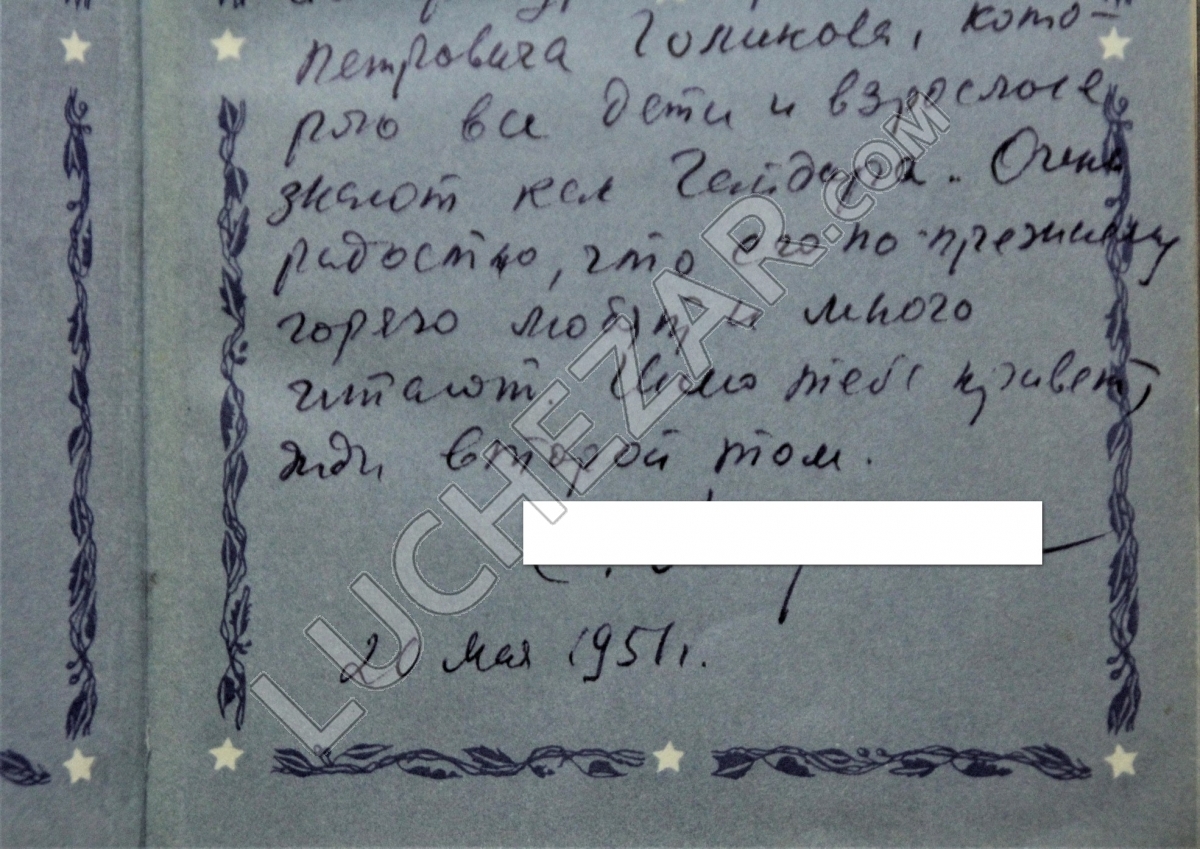 Петровича Голикова, кото-
рго все дети и взрослое
знают как Гайдара. Очень
радостно, что его по-прежнему
горячо любят и много
читают. Шлю тебе привет,
жди второй том.
20 мая 1951 г.
LUCHEZAR.COM